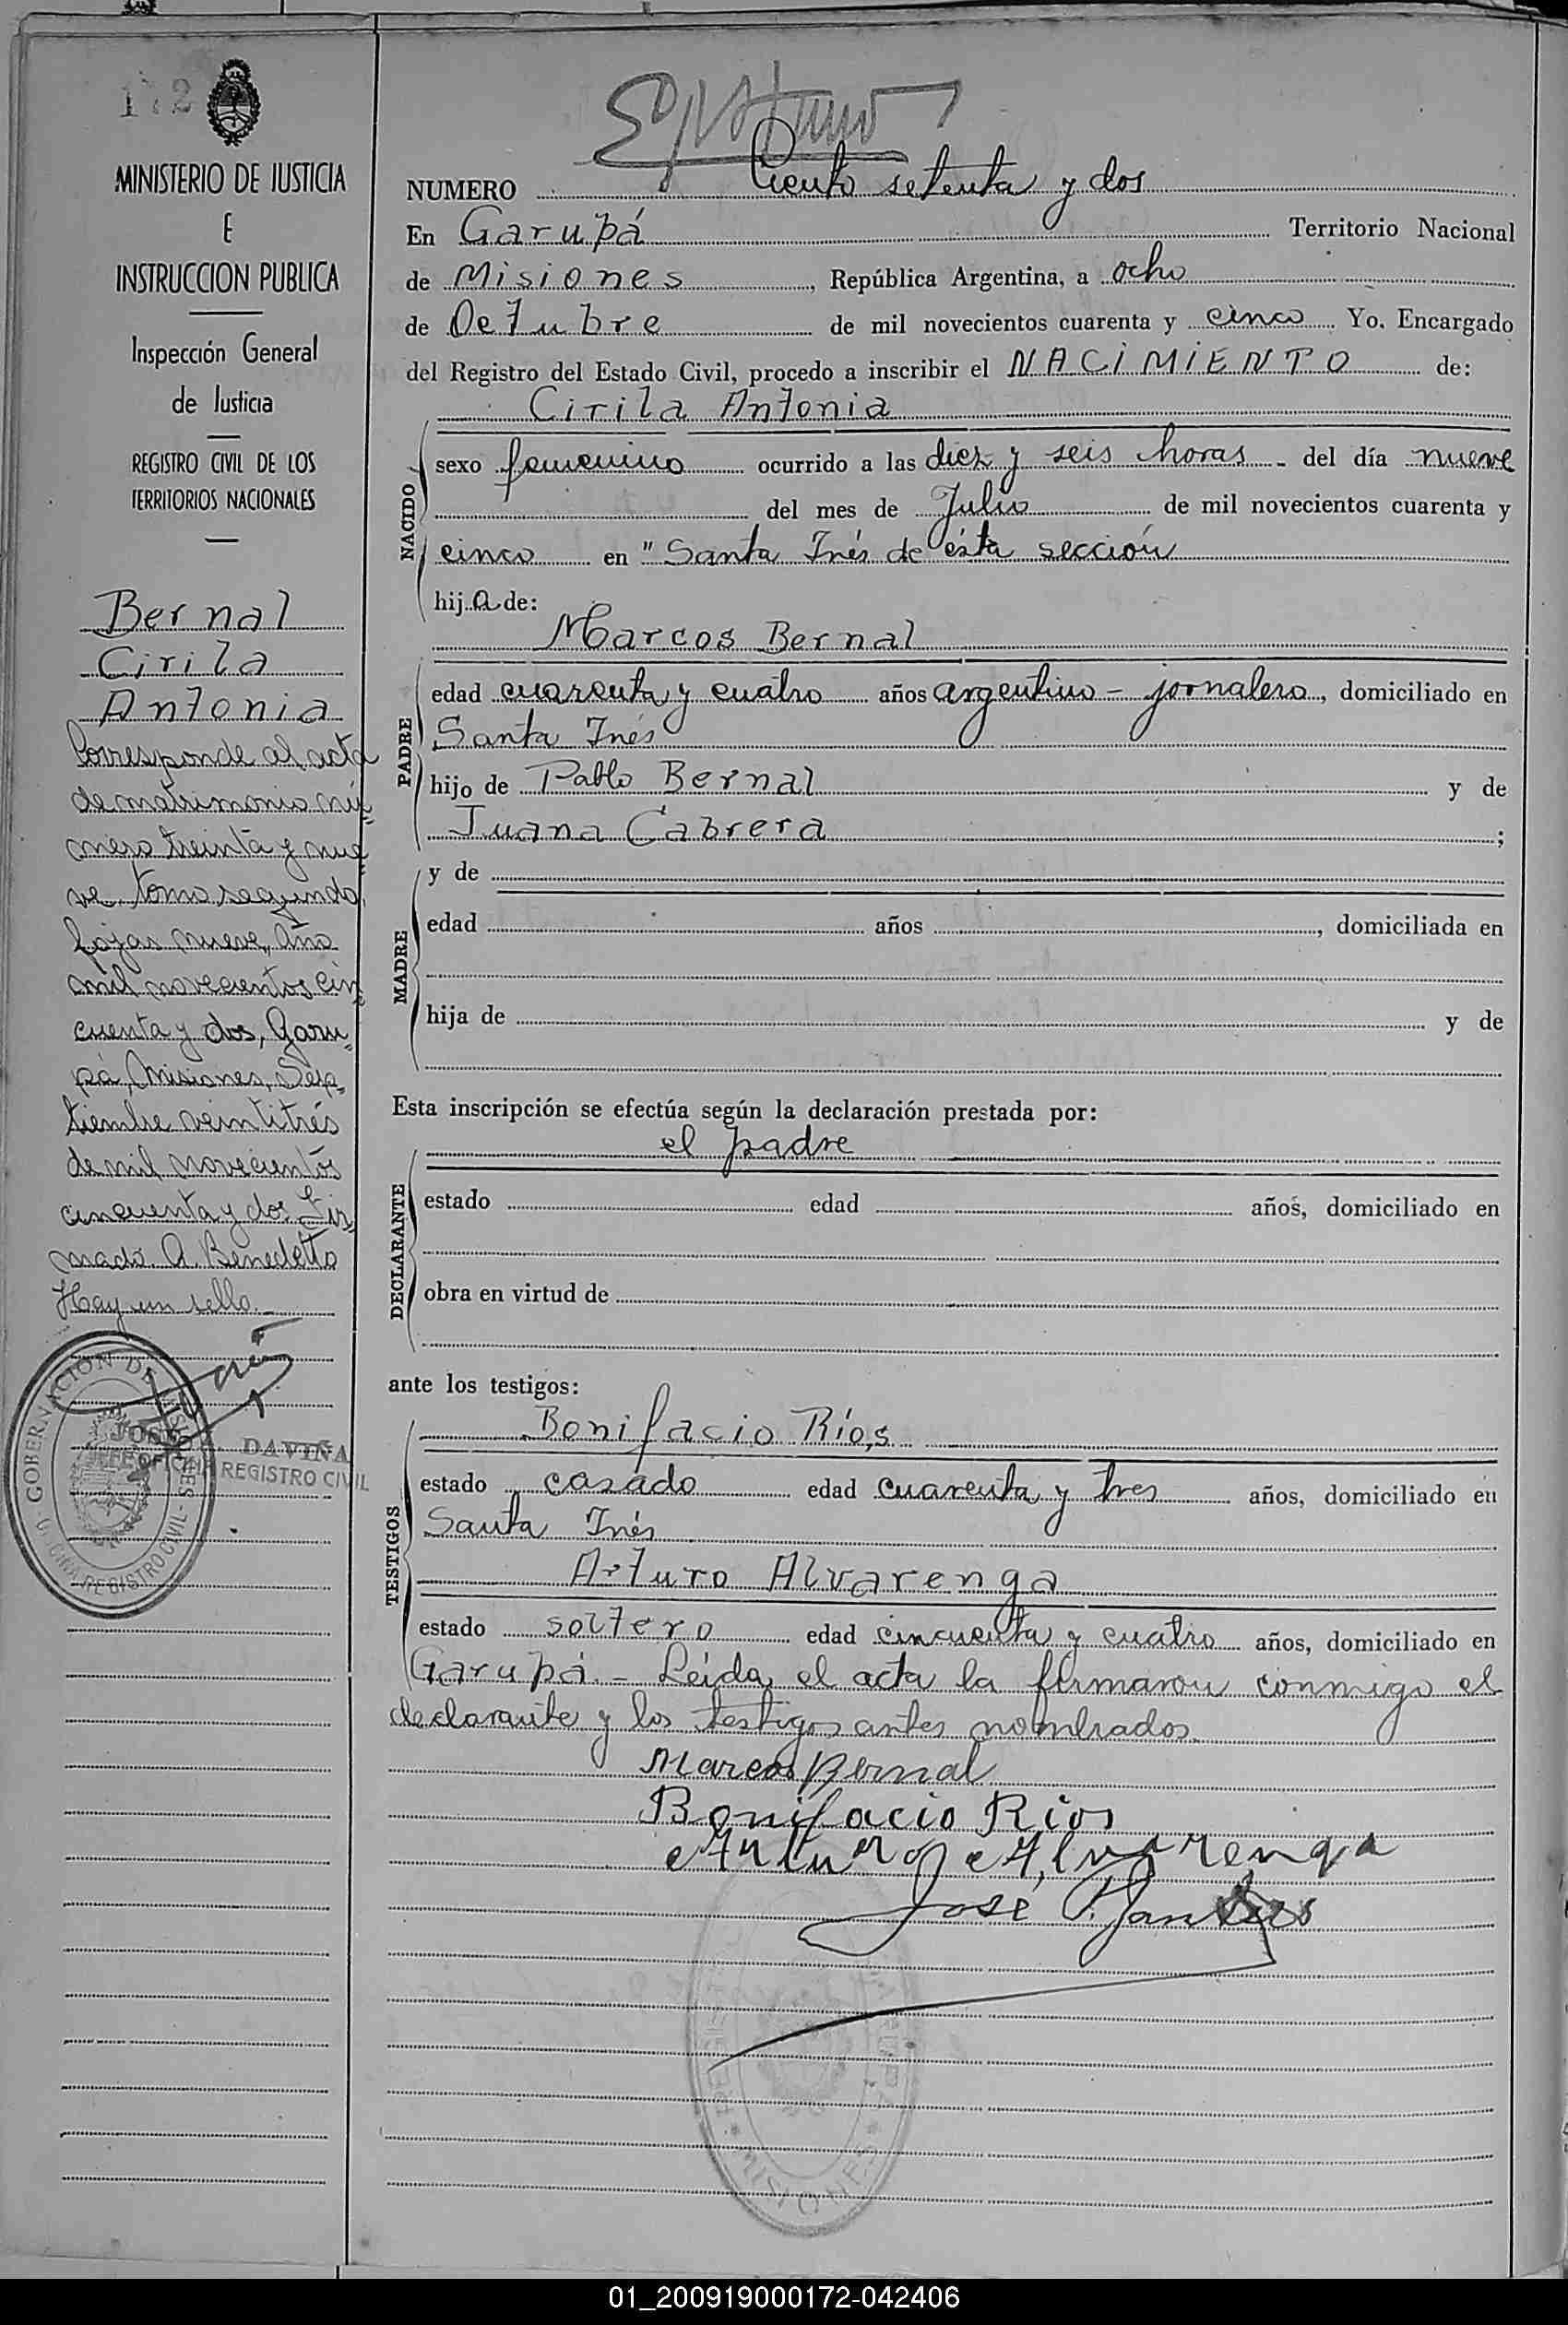 172
MINISTERIO DE JUSTICIA
E
INSTRUCCION PUBLICA
Inspección General
de Justicia
REGISTRO CIVIL DE LOS
TERRITORIOS NACIONALES
Bernal
Cirila
Antonia
Corresponde al acta
de matrimonio nú-
mero treinta y nue
ve, tomo segundo,
fojas nueve, año
mil novecientos cin
cuenta y dos, Garu-
pá, Misiones, Sep-
tiembre veintitrés
de mil novecientos
cincuenta y dos. Fir-
mado. A. Benedetto
Hay un sello.
GOBERNACION DE MISIONES
REGISTRO CIVIL
JOSE DAVIÑA
JEFE OFICINA REGISTRO CIVIL
NUMERO Ciento setenta y dos
En Garupá Territorio Nacional
de Misiones, República Argentina, a ocho
de Octubre de mil novecientos cuarenta y cinco Yo. Encargado
del Registro del Estado Civil, procedo a inscribir el NACIMIENTO de:
Cirila Antonia
NACIDO
sexo femenino ocurrido a las diez y seis horas - del día nueve
del mes de Julio de mil novecientos cuarenta y
cinco en "Santa Inés de ésta sección
hija de:
Marcos Bernal
PADRE
edad cuarenta y cuatro años argentino - jornalero, domiciliado en
Santa Inés
hijo de Pablo Bernal y de
Juana Cabrera;
MADRE
y de
edad años, domiciliada en
hija de y de
Esta inscripción se efectúa según la declaración prestada por:
el padre
DECLARANTE
estado edad años, domiciliado en
obra en virtud de
ante los testigos:
Bonifacio Ríos
TESTIGOS
estado casado edad cuarenta y tres años, domiciliado en
Santa Inés
Arturo Alvarenga
estado soltero edad cincuenta y cuatro años, domiciliado en
Garupá.- Leída el acta la firmaron conmigo el
declarante y los testigos antes nombrados.
Marcos Bernal
Bonifacio Rios
Arturo Alvarenga
José
MISIONES
01_200919000172-042406